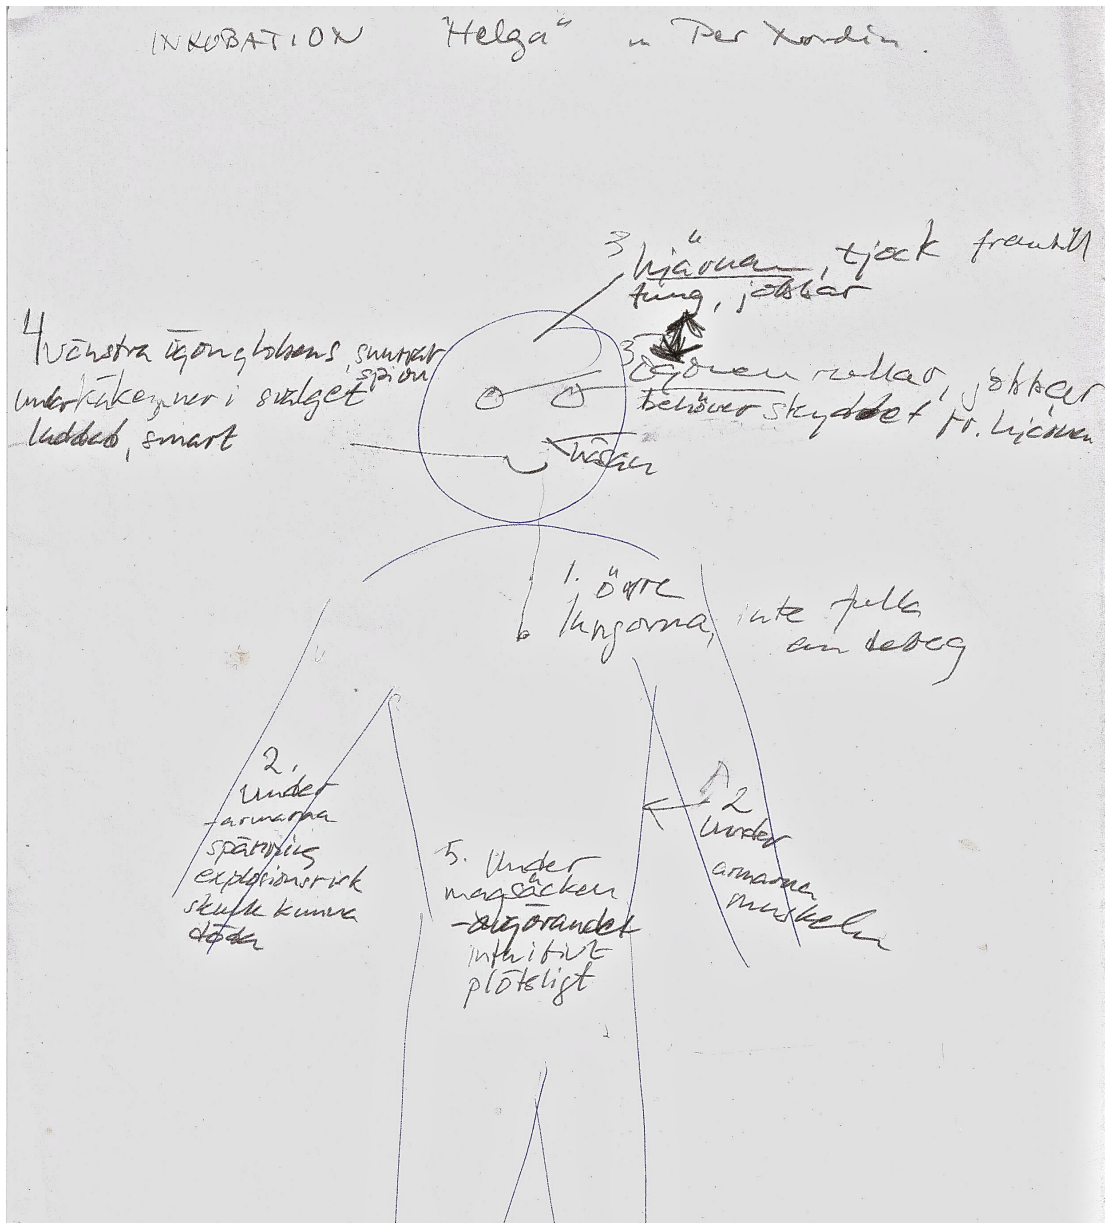 INKUBATION "Helga" Per Nordin.
3 hjärnan, tjock framtill
tung, jobbar
4 vänstra ögonglobens, smurat
spion
under käken, ner i svalget
laddad, smart
3 ögonen rullar, jobbar
behöver skyddet fr. hjärnan
näsan
1. övre
lungorna, inte fulla
andetag
2.
under
armarna
spänning
explosionsrisk
skulle kunna
döda
2
under
armarna
muskeln
5. Under
magsäcken
avgörandet
intuitivt
plötsligt